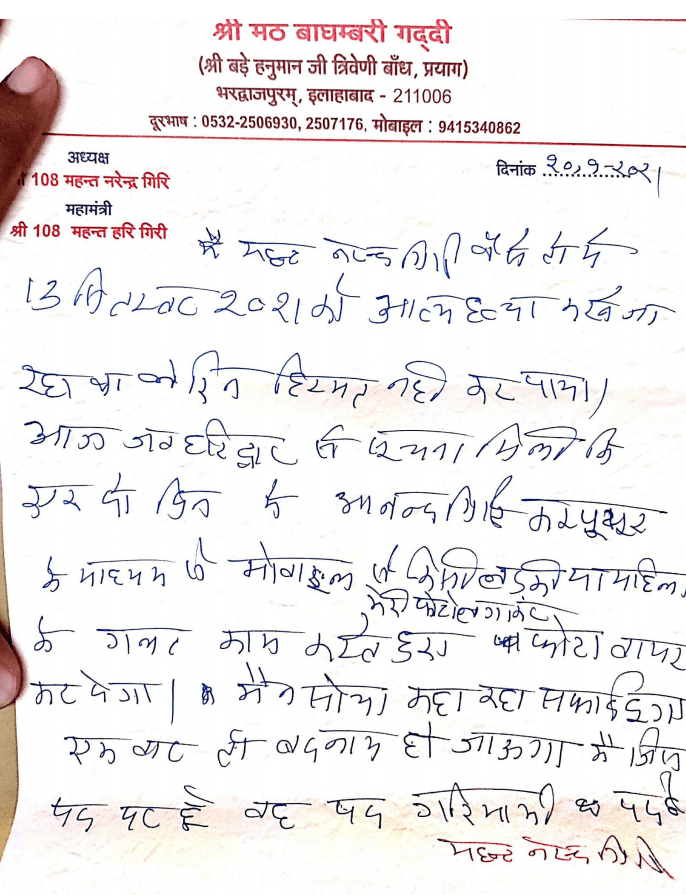 श्री मठ बाघम्बरी गद्दी
(श्री बड़े हनुमान जी त्रिवेणी बाँध, प्रयाग)
भरद्वाजपुरम्, इलाहाबाद - 211006
दूरभाष : 0532-2506930, 2507176, मोबाइल : 9415340862
अध्यक्ष
108 महन्त नरेन्द्र गिरि
महामंत्री
श्री 108 महन्त हरि गिरी
दिनांक २०,९-२०२१
मै महन्त नरेन्द्र गिरी वैसे तो मै
13 सितम्बर २०२१ को आत्म हत्या करने जा
रहा था लेकिन हिम्मत नही कर पाया।
आज जब हरिद्वार से सूचना मिली कि
एक दो दिन में आनन्द गिरि कम्पूयूटर
के माध्यम से मोबाइल से किसी लड़की या महिला
मेरी फोटो लगाकर
के गलत काम करते हुए फोटो वायर
कर देगा। मैने सोचा कहा रहा सफाई दूंगा
एक बार तो बदनाम हो जाऊगा मै जिस
पद पर हूं वह पद गरिमामयी पद है
महन्त नरेन्द्र गिरि